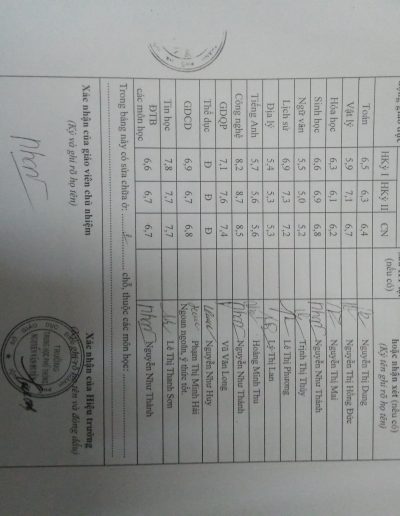 HKỳ I HKỳ II CN
(nếu có)
hoặc nhận xét (nếu có)
(Ký ghi rõ họ tên)
Toán 6,5 6,3 6,4 Nguyễn Thị Dung
Vật lý 5,9 7,1 6,7 Nguyễn Thị Hồng Đức
Hóa học 6,3 6,1 6,2 Nguyễn Thị Mai
Sinh học 6,6 6,9 6,8 Nguyễn Như Thành
Ngữ văn 5,5 5,0 5,2 Trịnh Thị Thủy
Lịch sử 6,9 7,3 7,2 Lê Thị Phương
Địa lý 5,4 5,3 5,3 Lê Thị Lan
Tiếng Anh 5,7 5,6 5,6 Hoàng Minh Thu
Công nghệ 8,2 8,7 8,5 Nguyễn Như Thành
GDQP 7,1 7,6 7,4 Vũ Văn Long
Thể dục Đ Đ Đ Nguyễn Như Huy
GDCD 6,9 6,7 6,8 Phạm Thị Minh Hải
Ngoan ngoãn, ý thức tốt.
Tin học 7,8 7,7 7,7 Lê Thị Thanh Sơn
ĐTB các môn học 6,6 6,7 6,7 Nguyễn Như Thành
Trong bảng này có sửa chữa ở: chỗ, thuộc các môn học:
Xác nhận của giáo viên chủ nhiệm
(Ký và ghi rõ họ tên)
Xác nhận của Hiệu trưởng
(Ký, ghi rõ họ tên và đóng dấu)